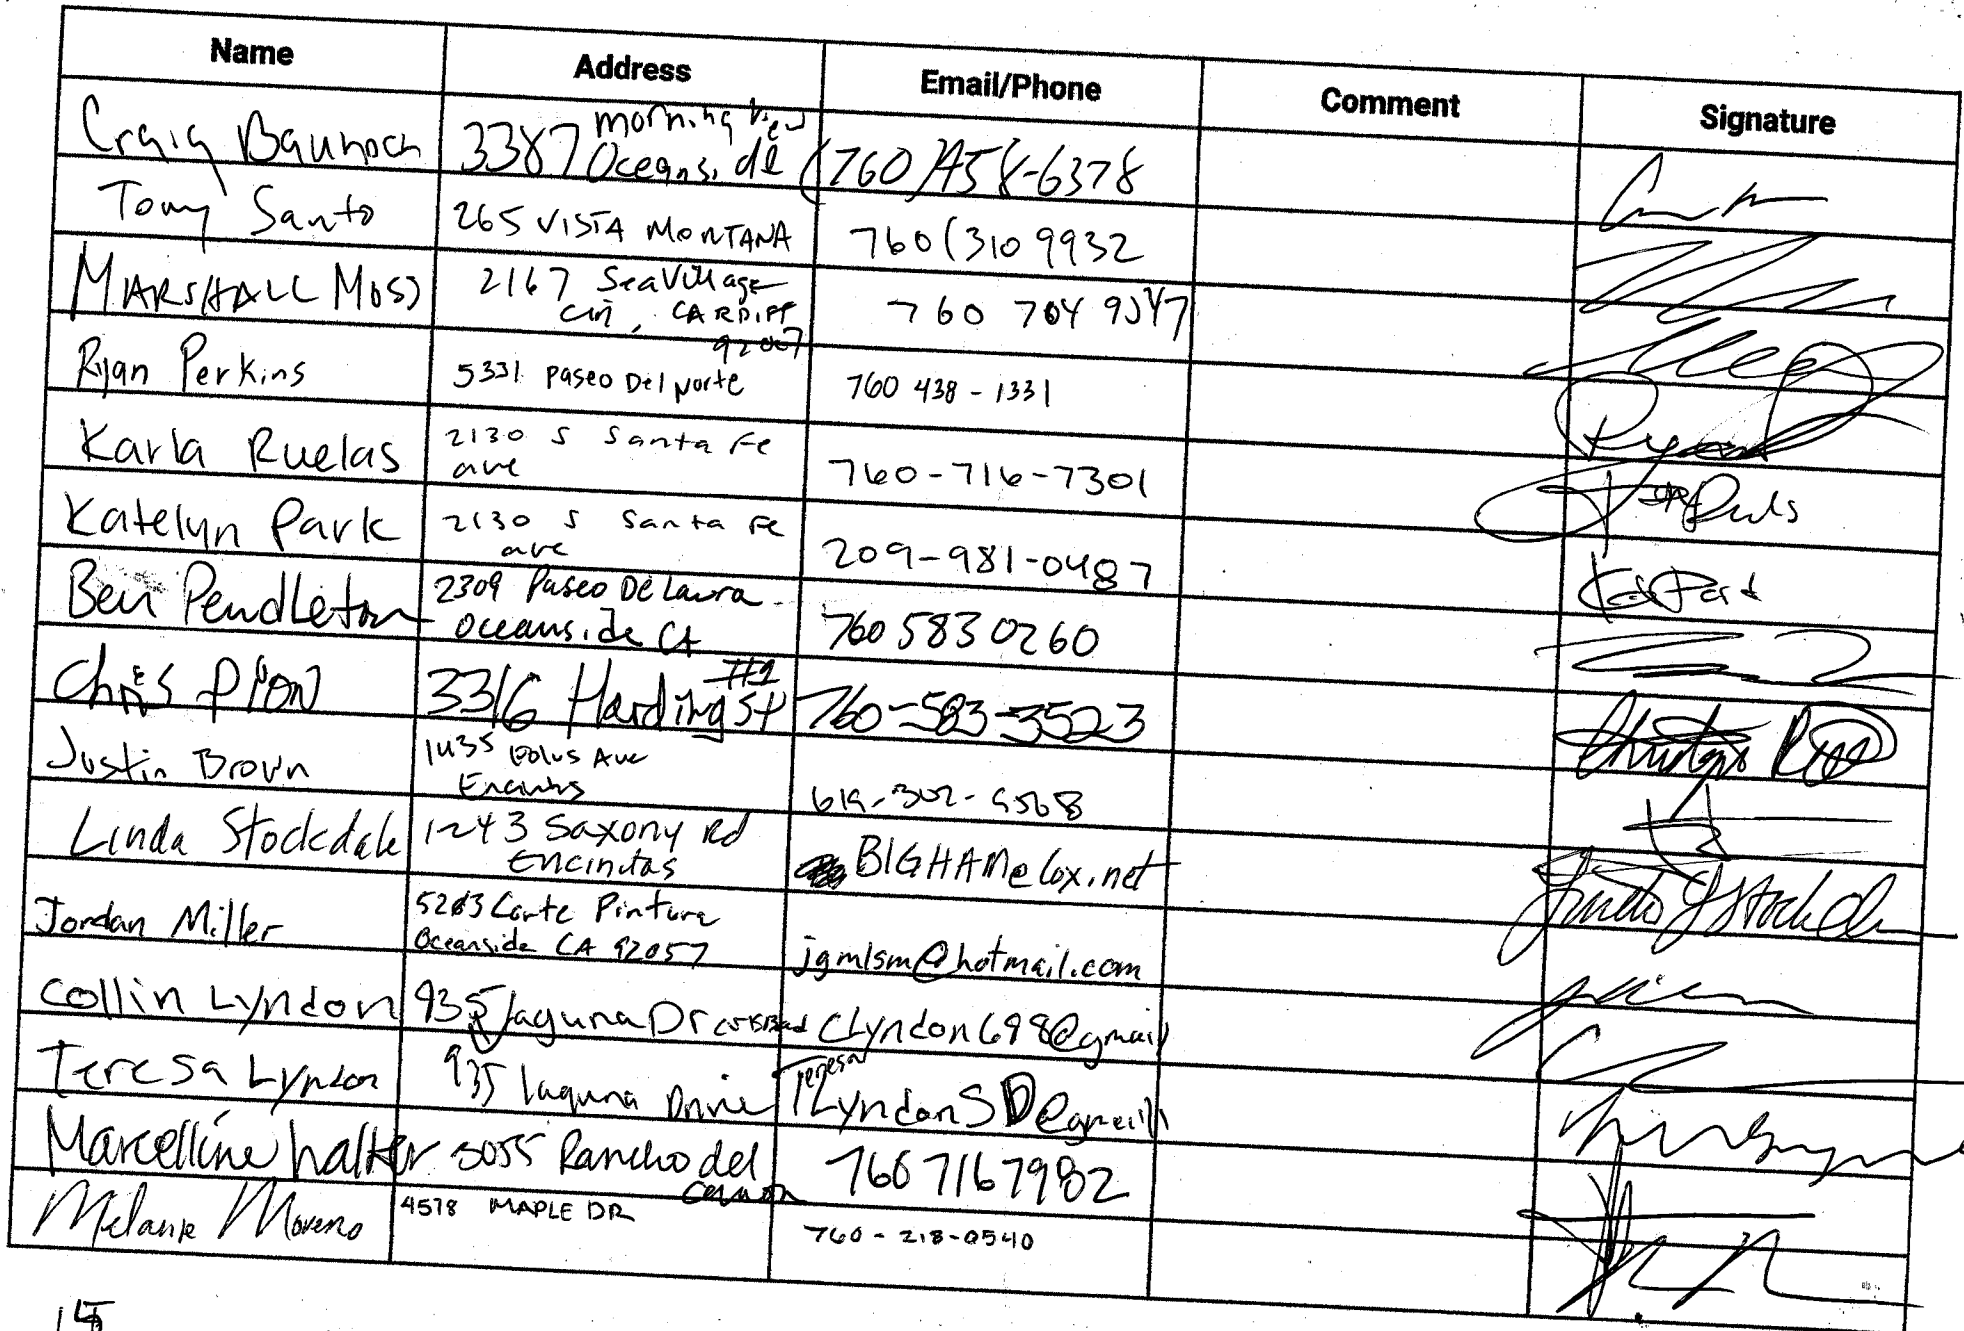 Name Address Email/Phone Comment Signature
Craig 3387 Morning View Oceanside (760) 458-6378
Tony Santo 265 VISTA MONTANA 760(310 9932
MARSHALL MOSS 2167 Sea Village
Cir, CARDIFF
92007
760 704 9547
Ryan Perkins 5331 Paseo Del Norte 760 438-1331
Karla Ruelas 2130 S Santa Fe
ave
760-716-7301
Katelyn Park 2130 S Santa Fe
ave
209-981-0487
Ben Pendleton 2309 Paseo De Laura
Oceanside CA
760 583 0260
Chris Pion 3316 Harding St #2 760-583-3523
Justin Brown 1435 Eolus Ave
Encinitas
619-302-9568
Linda Stockdale 1243 Saxony Rd
Encinitas
BIGHAM@cox.net
Jordan Miller Corte Pintura
Oceanside CA 92057
jgmlsm@hotmail.com
Collin Lyndon 935 Laguna Dr Carlsbad CLyndon698@gmail
Teresa Lyndon 935 Laguna Drive Teresa LyndonSD@gmail
Marcelline 3055 Rancho del
Canon
760 7167982
Melanie Moreno 4578 MAPLE DR 760-218-0540
15